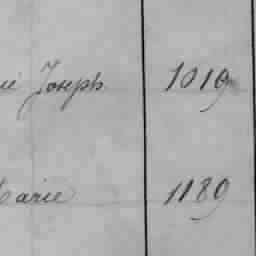 Joseph 1019
Marie 1189